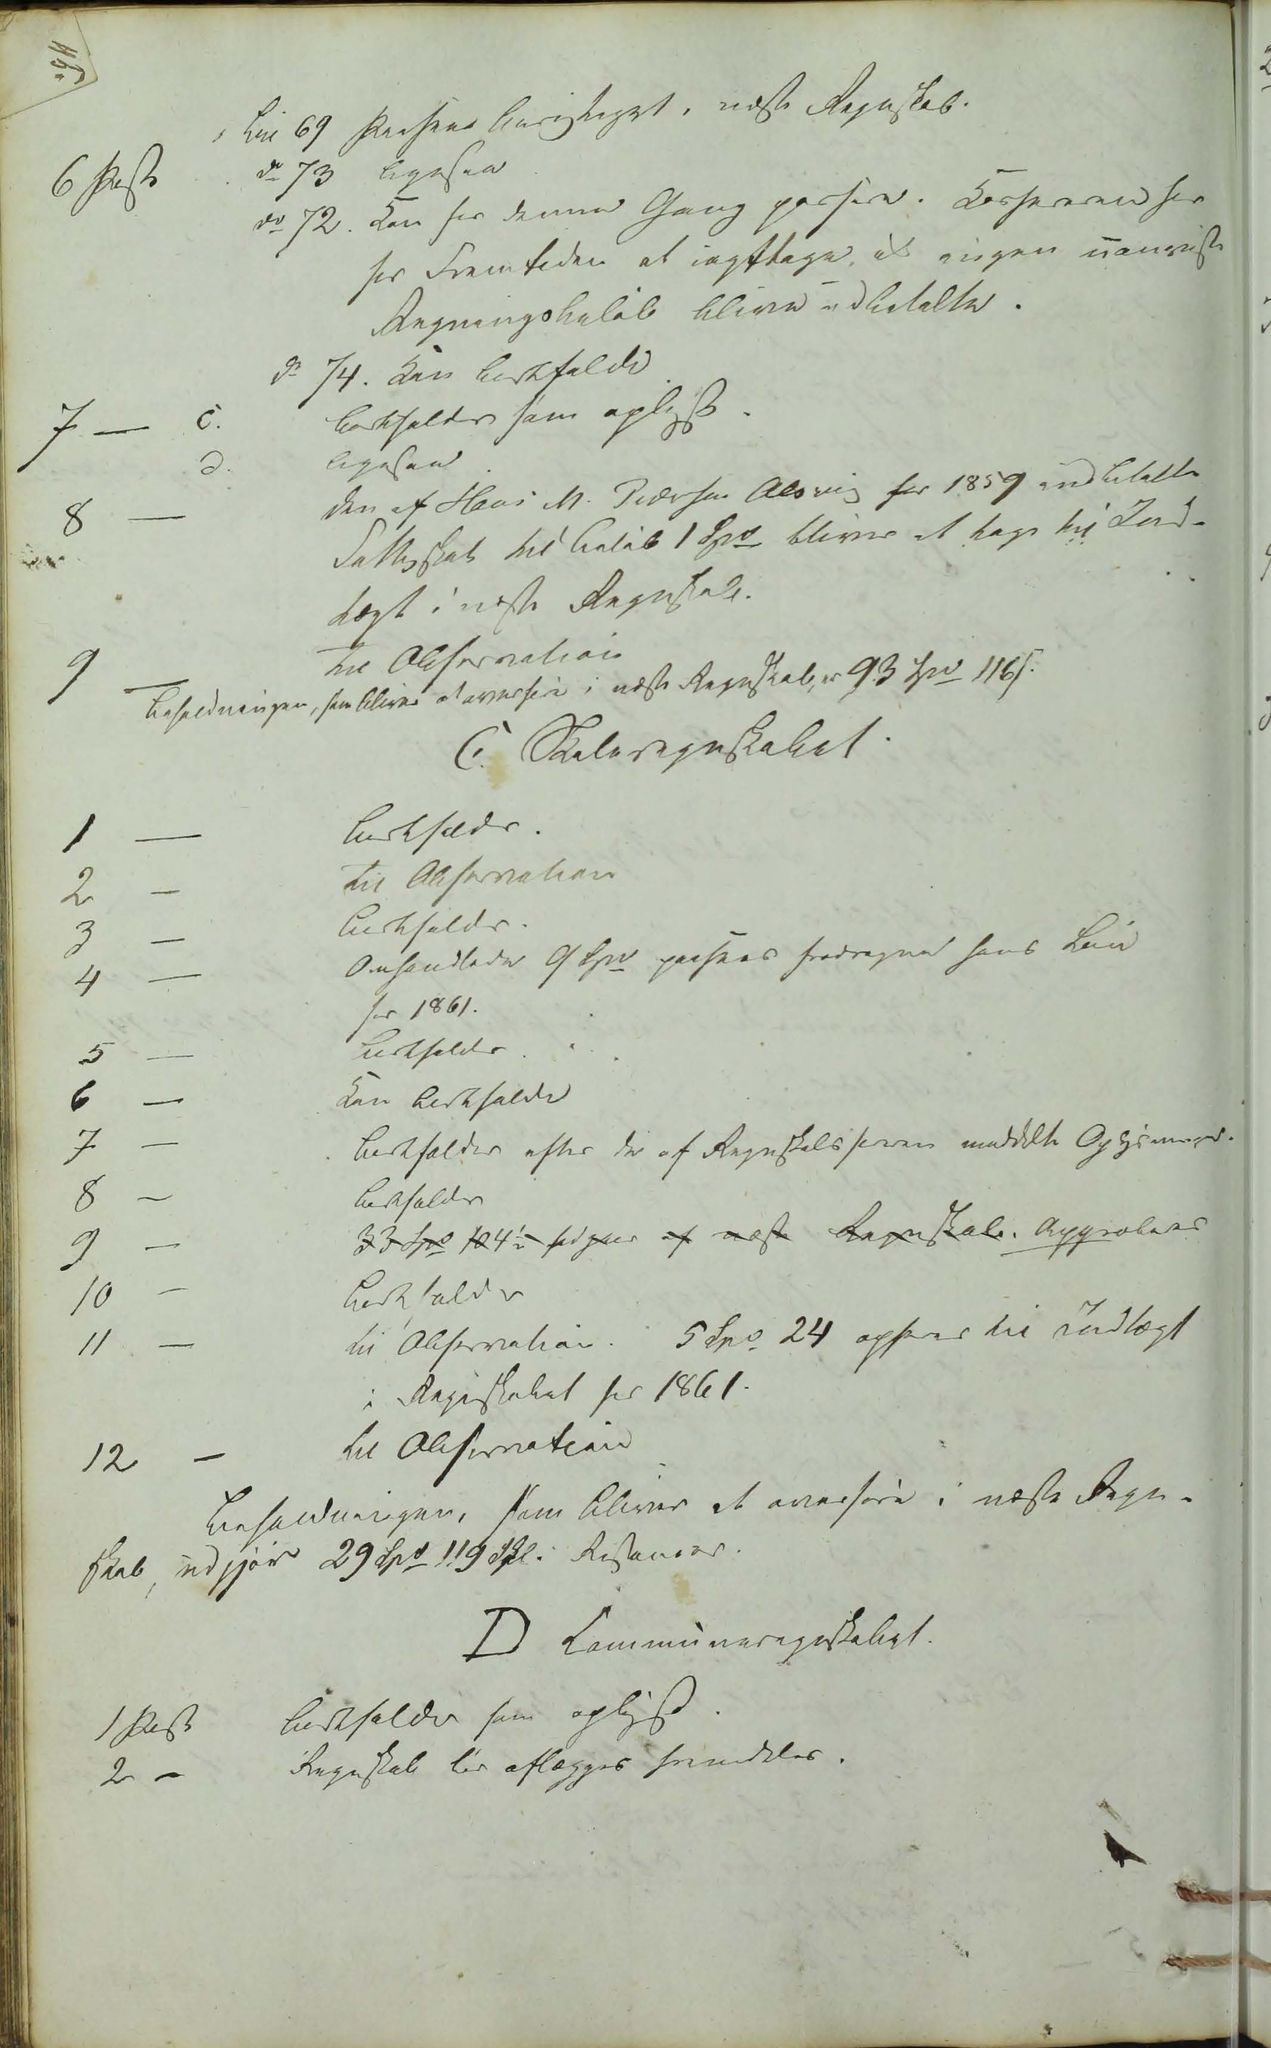 Bil 69 paaføres berigtiget i næste Regnskab.
6 Post do 73 ligesaa
do 72. Kan for denne Gang passere. Kassereren har
for Fremtiden at iagttage, at ingen uanviste
Regningsbeløb blive udbetalte.
do 74. Kan bortfalde
7 — c. bortfalder som oplyst.
d. ligesaa
8 — Den af Hans M. Pedersen for 1859 indbetalte
Fattigskat til Beløb 1 Spd bliver at tage til Ind-
tægt i næste Regnskab.
9 — til Observation
Beholdningen, som bliver at overføre i næste Regnskab, er 93 Spd 116 s.
C. Skoleregnskabet.
1 — bortfalder.
2 — til Observation
3 — bortfalder.
4 — Omhandlede 9 Spd fradrages hans Løn
for 1861.
5 — bortfalder.
6 — Kan bortfalde
7 — bortfalder efter de af Regnskabsføreren meddelte Oplysninger.
8 — bortfalder
9 — 33 Spd 104 af næste Regnskab. Approberes
10 — bortfalder
11 — til Observation. 5 Spd 24 opføres til Indtægt
i Regnskabet for 1861.
12 — til Observation
Beholdningen, som bliver at overføre i næste Regn-
skab, udgjør 29 Spd 119 Skl. i Restancer.
D Kommuneregnskabet.
1 Post bortfalder som oplyst.
2 — Regnskab bør aflægges fremdeles.